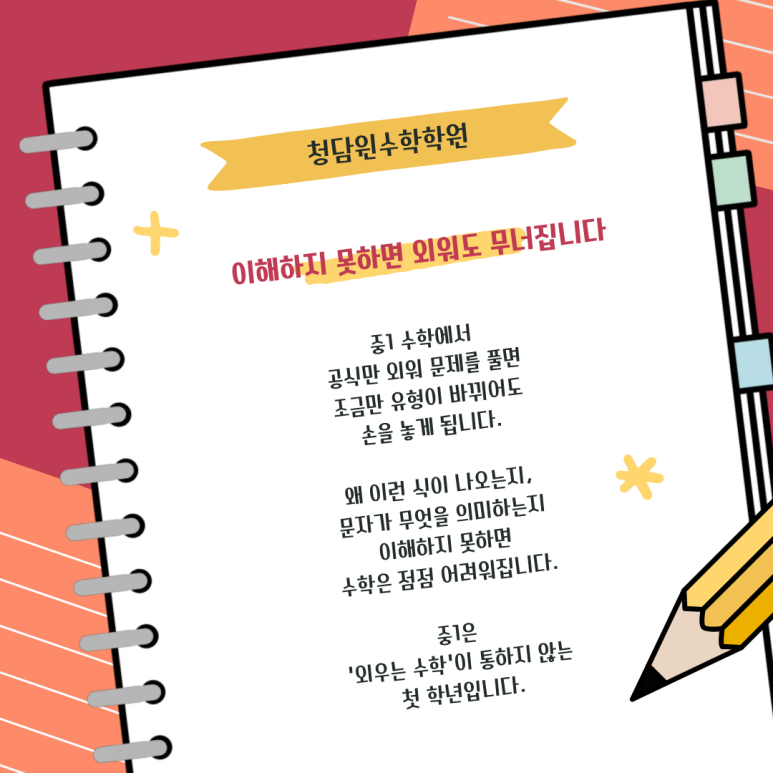 청담원수학학원
이해하지 못하면 외워도 무너집니다
중1 수학에서
공식만 외워 문제를 풀면
조금만 유형이 바뀌어도
손을 놓게 됩니다.
왜 이런 식이 나오는지,
문자가 무엇을 의미하는지
이해하지 못하면
수학은 점점 어려워집니다.
중1은
'외우는 수학'이 통하지 않는
첫 학년입니다.